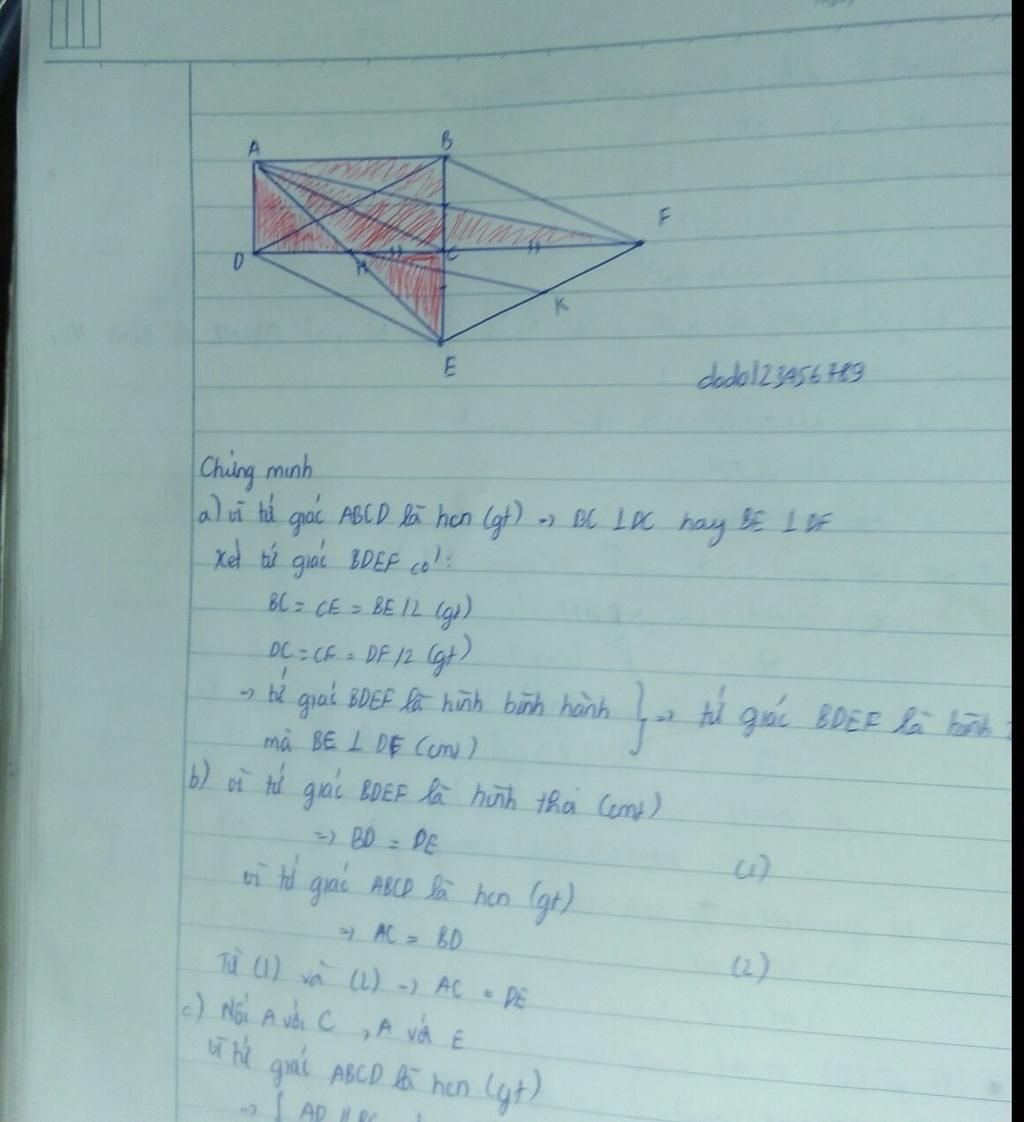 A
B
F
D
H
C
K
E
dodo123456789
Chứng minh
a) Vì tứ giác ABCD là hcn (gt) => BC ⊥ DC hay BE ⊥ DF
Xét tứ giác BDEF có:
BC = CE = BE/2 (gt)
DC = CF = DF/2 (gt)
-> tứ giác BDEF là hình bình hành } => tứ giác BDEF là hình
mà BE ⊥ DF (cmt)
b) Vì tứ giác BDEF là hình thoi (cmt)
=> BD = DE (1)
Vì tứ giác ABCD là hcn (gt)
=> AC = BD (2)
Từ (1) và (2) -> AC = DE
c) Nối A với C, A với E
Vì tứ giác ABCD là hcn (gt)
-> { AD // BC